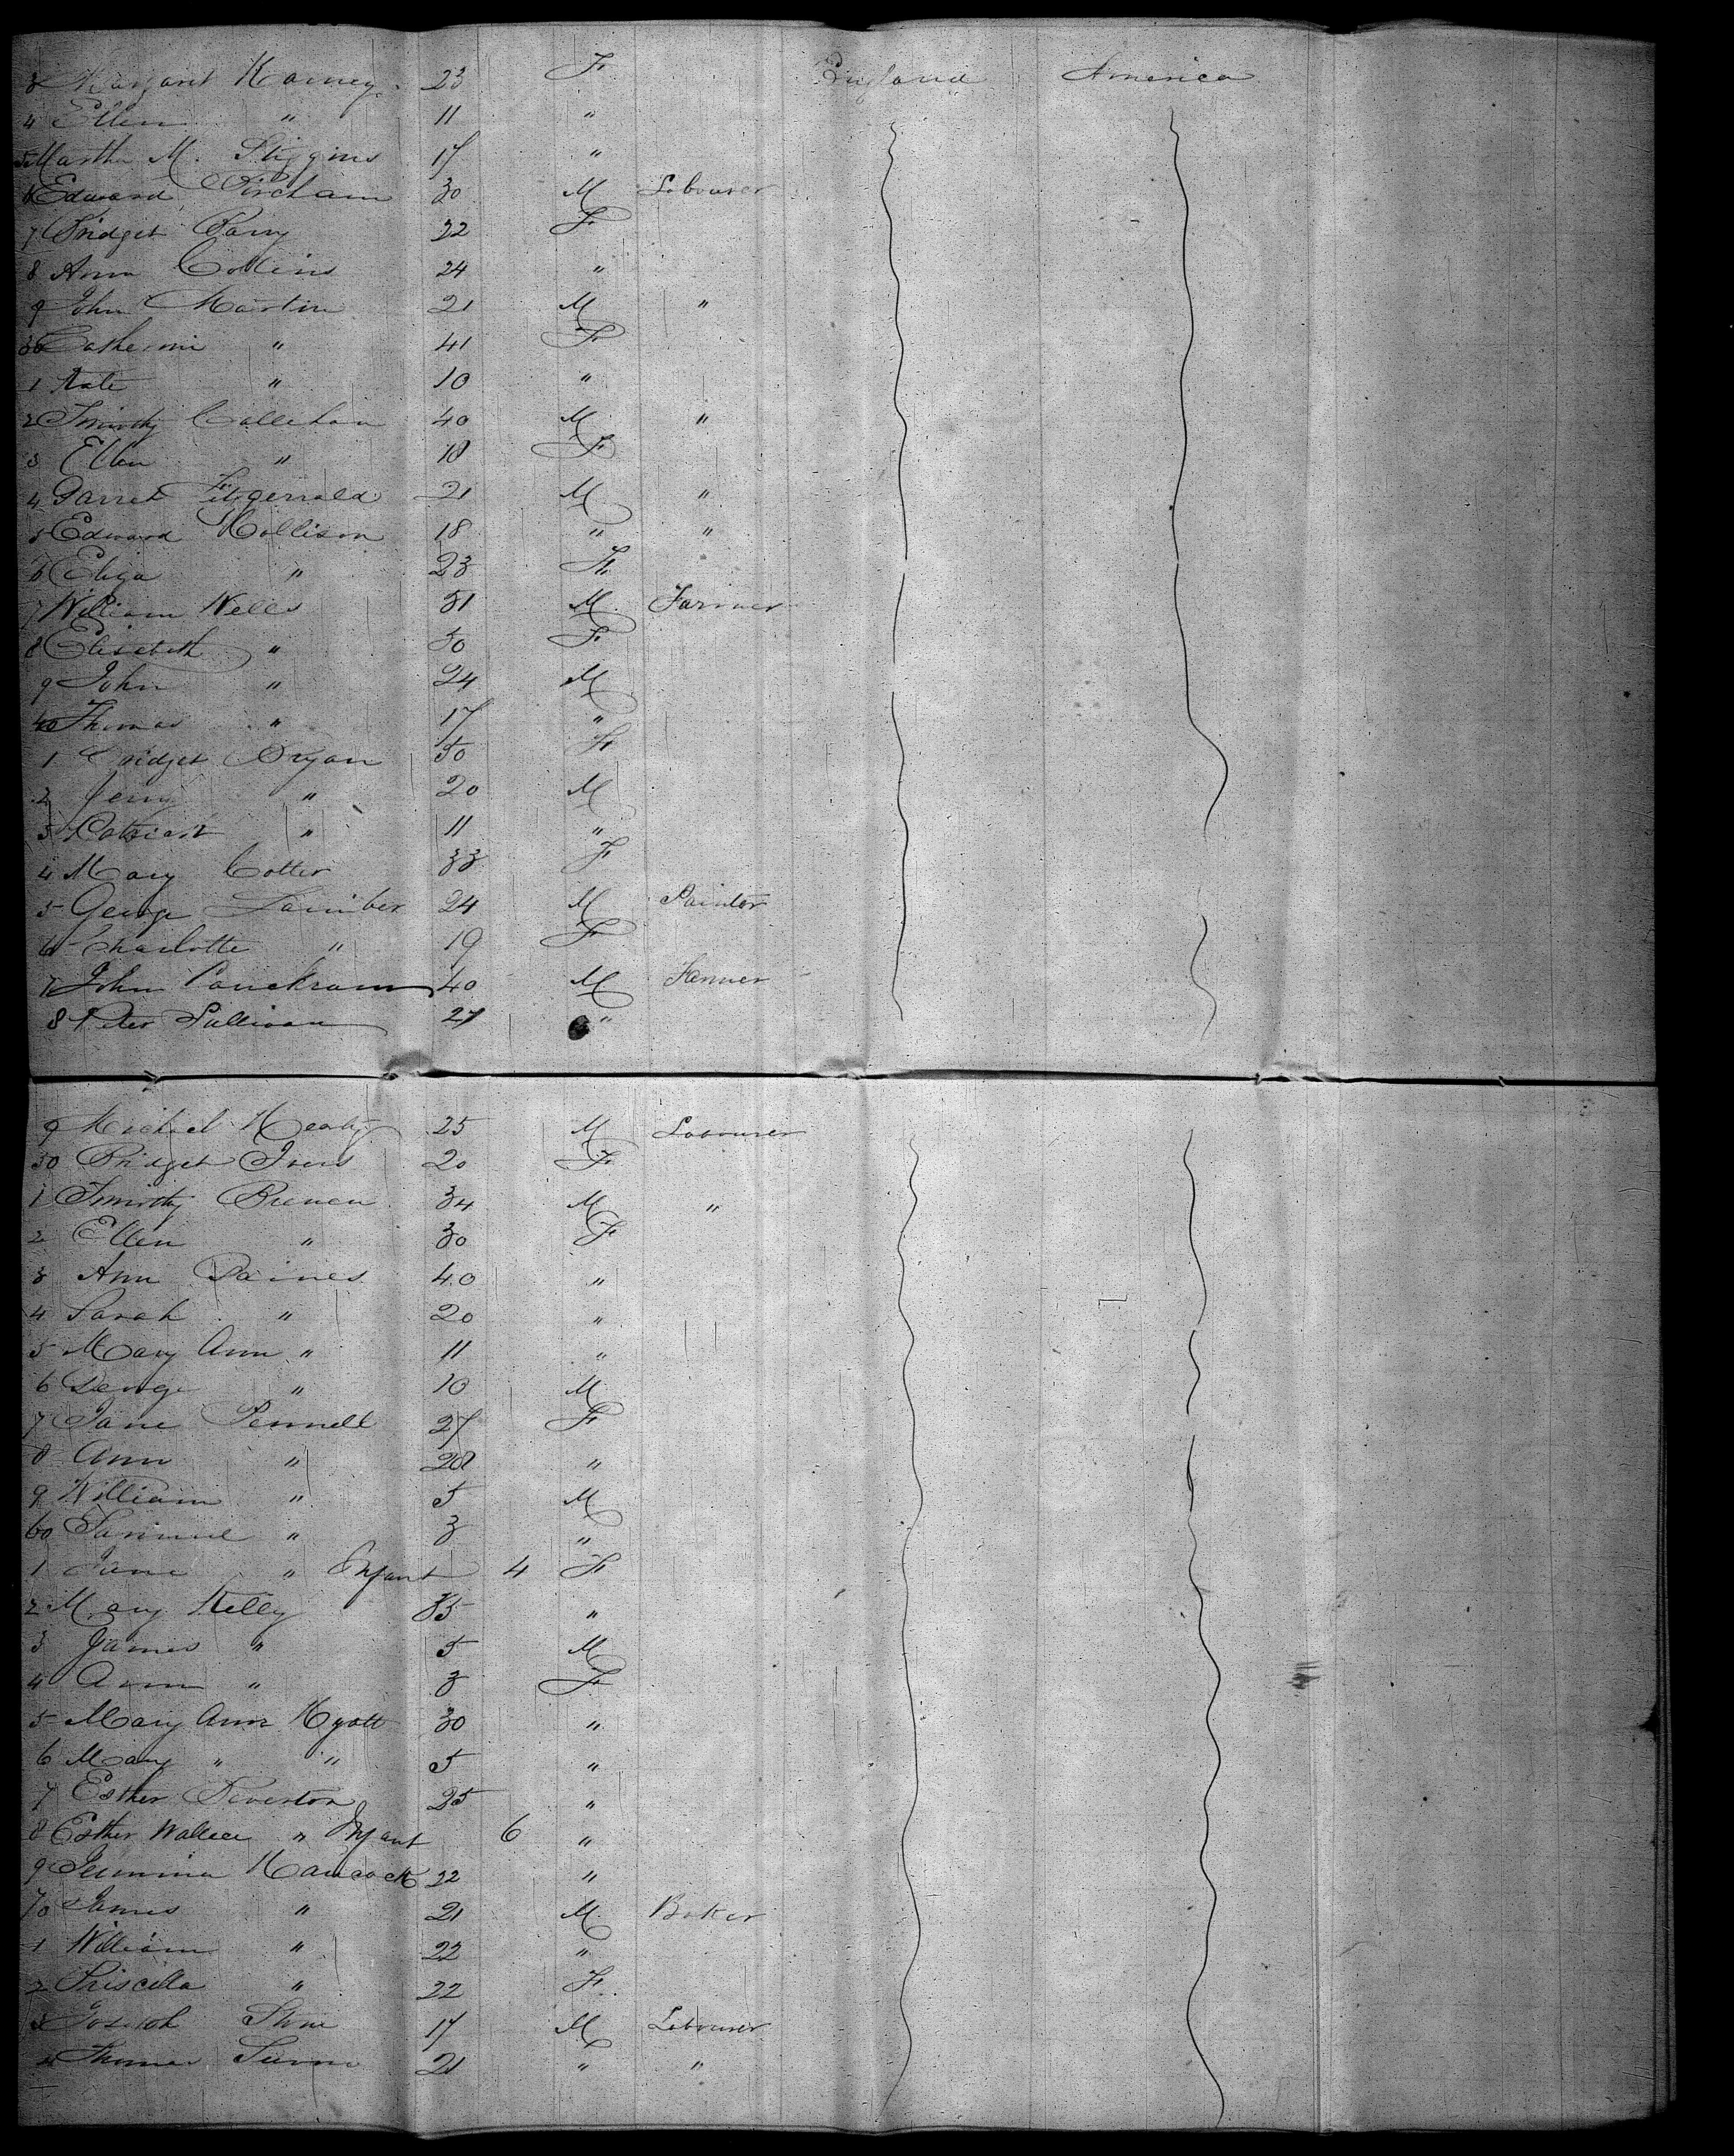 3 Margaret Harney 23 F England America
4 Ellen " 11 "
5 Martha M. Stiggins 17 "
6 Edward Pircham 30 M Labourer
7 Bridget Barry 22 F
8 Ann Collins 24 "
9 John Martin 21 M "
30 Catherine " 41 F
1 Kate " 10 "
2 Timothy Callehan 40 M "
3 Ellen " 18 F
4 Garret Fitzgerrald 21 M "
5 Edward Hollison 18 " "
6 Eliza " 23 F
7 William Wells 51 M Farmer
8 Elisebeth " 50 F
9 John " 24 M
40 Thomas " 17 "
1 Bridget Bryan 50 F
2 Jerry " 20 M
3 Patrick " 11 "
4 Mary Cotter 33 F
5 George Lamiber 24 M Painter
6 Charlotte " 19 F
7 John Panckram 40 M Farmer
8 Peter Sullivan 27 "
9 Michael Healy 25 M Labourer
50 Bridget Ivers 20 F
1 Timothy Brenen 34 M "
2 Ellen " 30 F
3 Ann Baines 40 "
4 Sarah " 20 "
5 Mary Ann " 11 "
6 George " 10 M
7 Jane Pennell 27 F
8 Ann " 20 "
9 William " 5 M
60 Samuel " 3 "
1 Jane " Infant 4 F
2 Mary Kelly 35 "
3 James " 5 M
4 Ann " 3 F
5 Mary Ann Hyatt 30 "
6 Mary " " 5 "
7 Esther Peverton 25 "
8 Esther Wallace " Infant 6 "
9 Jemmina Hancock 22 "
70 James " 21 M Baker
1 William " 22 "
2 Priscilla " 22 F
3 Joseph Stone 17 M Labourer
4 Thomas 21 " "